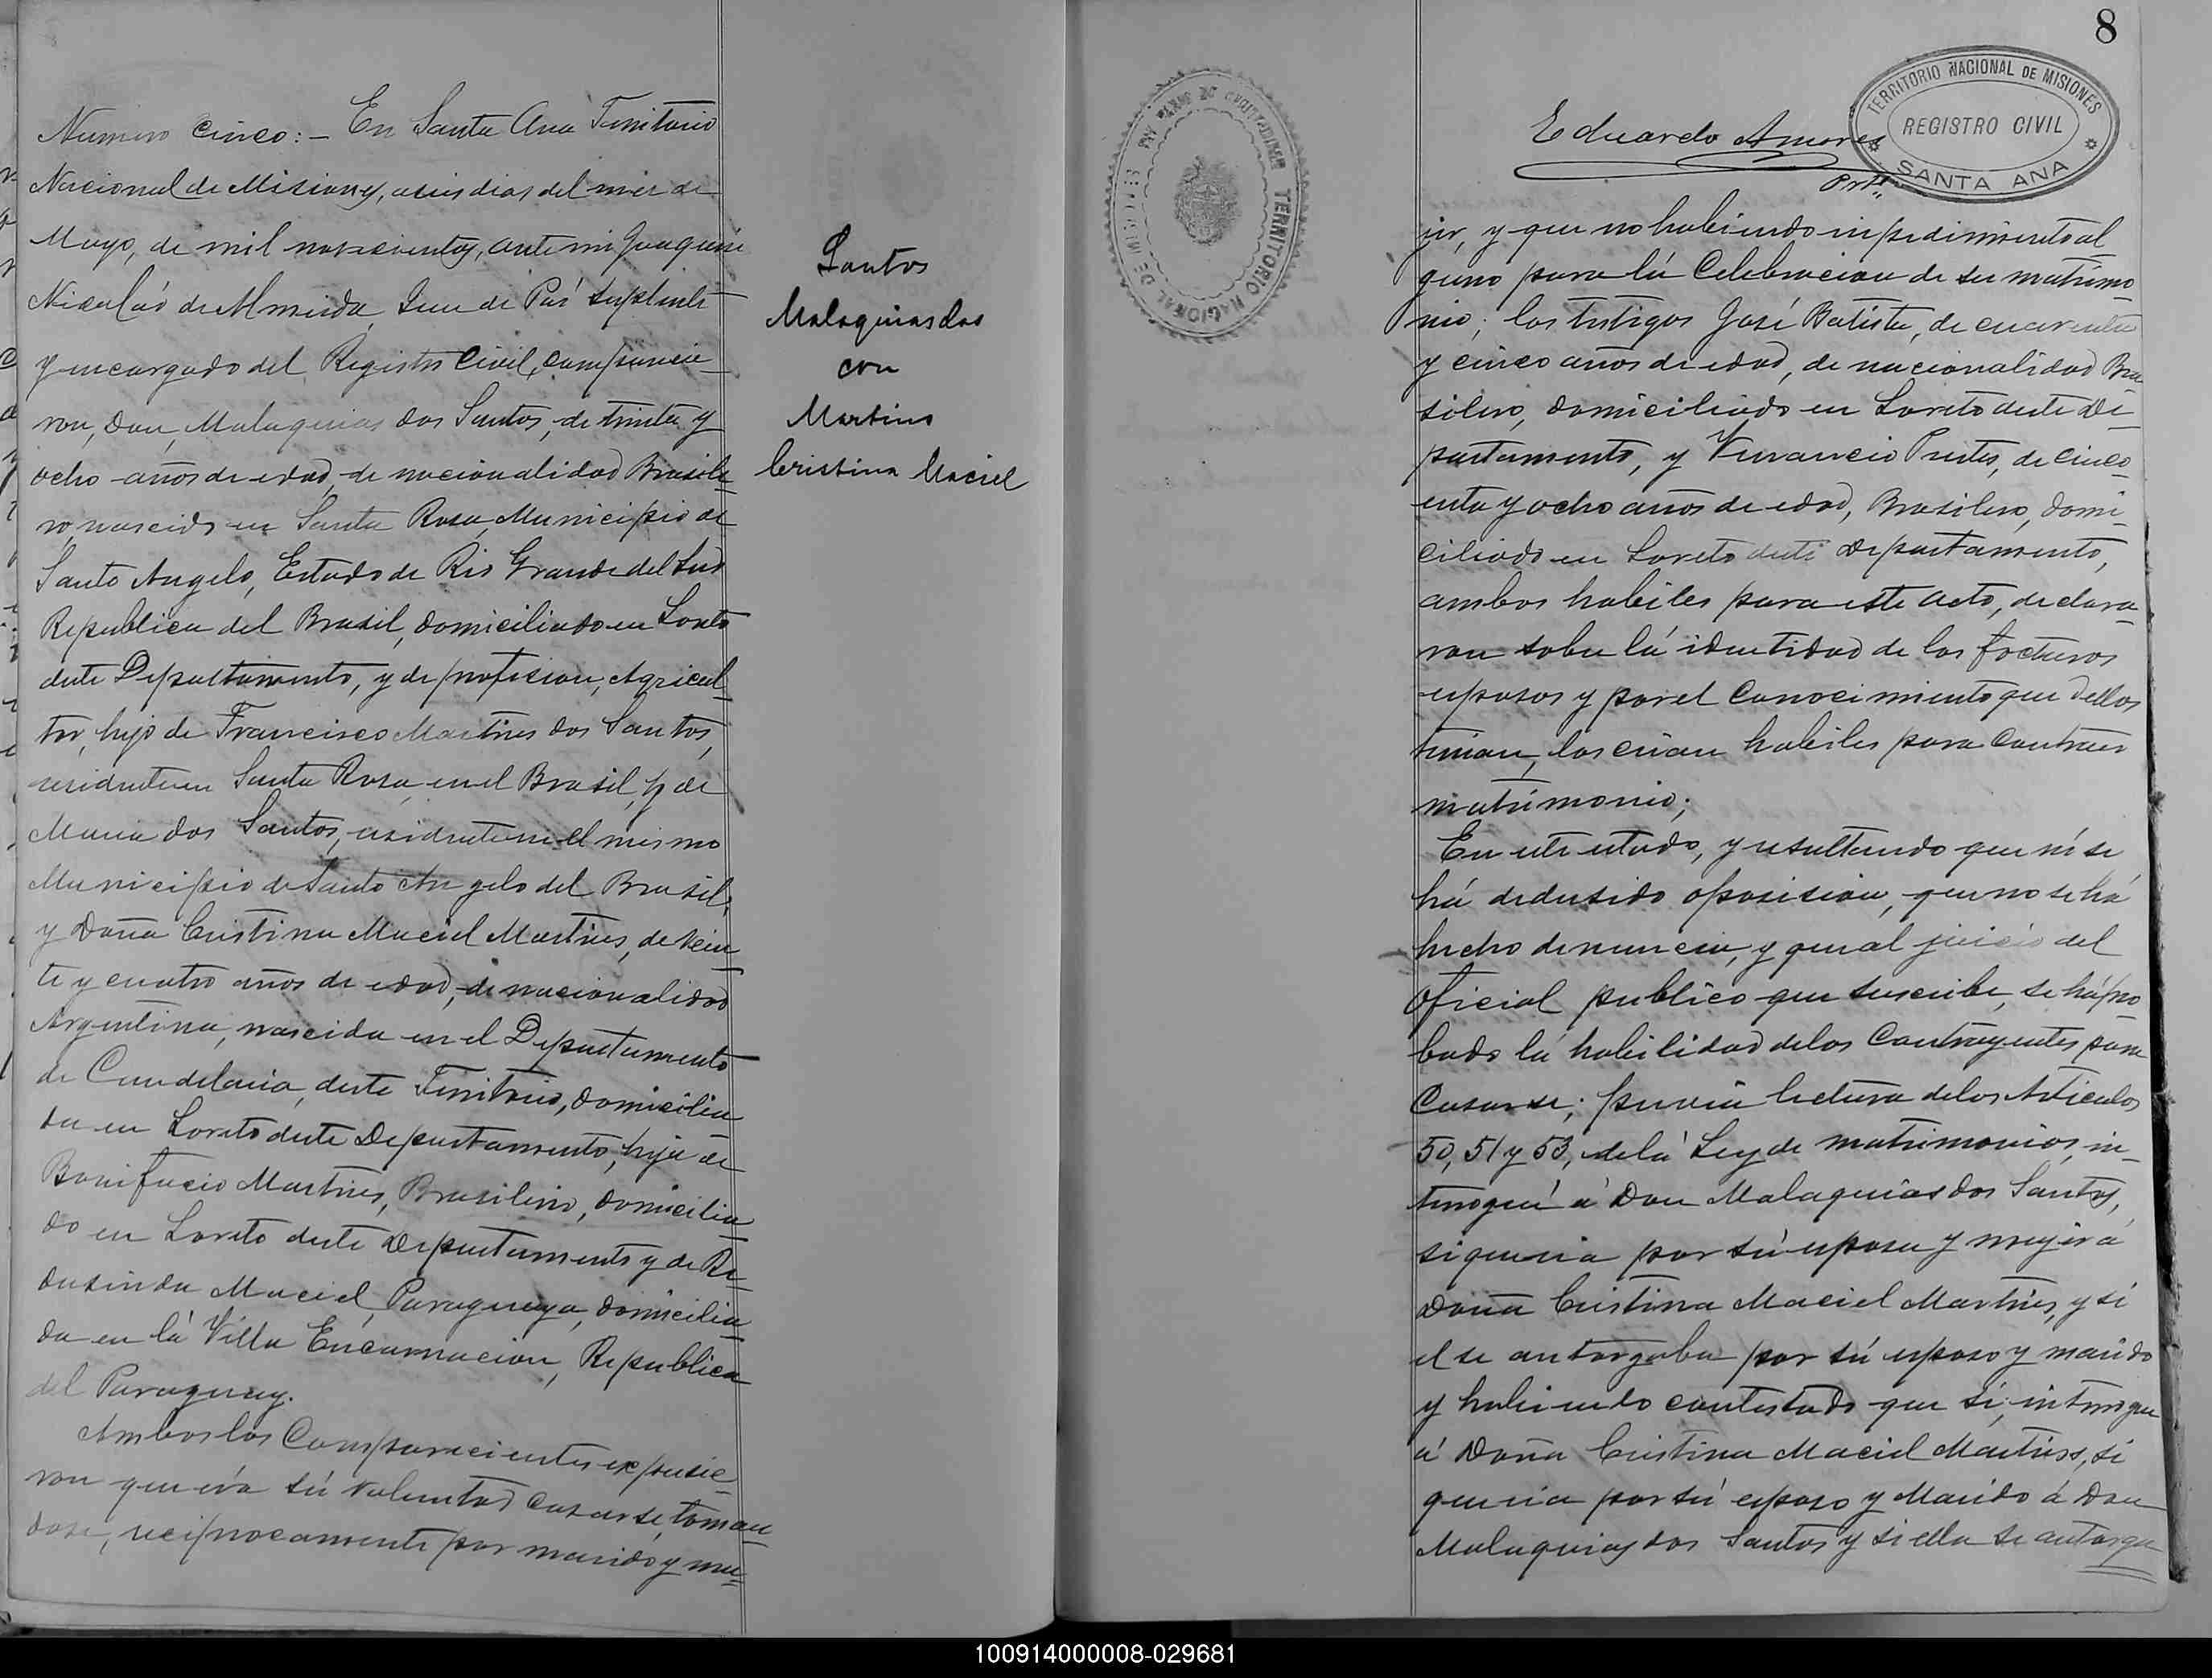 Numero cinco:- En Santa Ana Territorio
Nacional de Misiones, a seis dias del mes de
Mayo, de mil novescientos, ante mi Juaquin
Nicolás de Almeida Juez de Pas suplente
y encargado del Registro Civil, comparecie-
ron, Don, Malaquias dos Santos, de trinta y
ocho años de edad, de nacionalidad Brasile-
ro nascido en Santa Rosa, Municipio de
Santo Angelo, Estado de Rio Grande del Sud
Republica del Brasil, domiciliado en Loreto
deste Departamento, y de profesion, Agricul-
tor, hijo de Francisco Martires dos Santos,
residente en Santa Rosa, en el Brasil, y de
Maria dos Santos, residente en el mismo
Municipio de Santo Angelo del Brasil,
y Doña Cristina Maciel Martires, de vein-
te y cuatro años de edad, de nacionalidad
Argentina, nascida en el Departamento
de Candelaria, deste Territorio, domicilia-
da en Loreto deste Departamento, hija de
Bonifacio Martires, Brasilero, domicilia-
do en Loreto deste Departamento y de Re-
dusinda Maciel, Paraguaya, domicilia-
da en lá Villa Encarnacion, Republica
del Paraguay.
Ambos los Comparecientes expusie-
ron que éra sú voluntad casarse, toman-
dose, reciprocamente por marido y mu-
Santos
Malaquias dos
con
Martires
Cristina Maciel
8
TERRITORIO NACIONAL DE MISIONES
REGISTRO CIVIL
SANTA ANA
Eduardo Amores
TERRITORIO NACIONAL DE MISIONES
jer, y que no habiendo inpedimiento al-
guno para lá Celebracion de su matrimo-
nio; los testigos José Batista, de cuarenta
y cinco años de edad, de nacionalidad Bra-
silero, domiciliado en Loreto deste De-
partamento, y Venancio Prites, de cinco-
enta y ocho años de edad, Brasilero, domi-
ciliado en Loreto deste Departamento,
ambos habiles para este acto, declara-
ron sobre lá identidad de los focturos
esposos y por el Conocimiento que dellos
tenian, los crian habiles para Contraer
matrimonio;
En este estado, y resultando que nó se
há dedusido oposision, que no se há
hecho denuncia, y que al juicio del
Oficial publico que suscribe, se há pro-
bado lá habilidad delos Contrayentes para
Casarse; previa lectura delos Articulos
50, 51 y 53, delá Ley de matrimonios, in-
terrogué á Don Malaquias dos Santos,
si queria por sú esposa y mujer á
Doña Cristina Maciel Martires, y si
el se autorgaba por sú esposo y marido
y habiendo contestado que si, interrogue
á Doña Cristina Maciel Martires, si
queria por sú esposo y Marido á Don
Malaquias dos Santos y si ella se autorga-
100914000008-029681